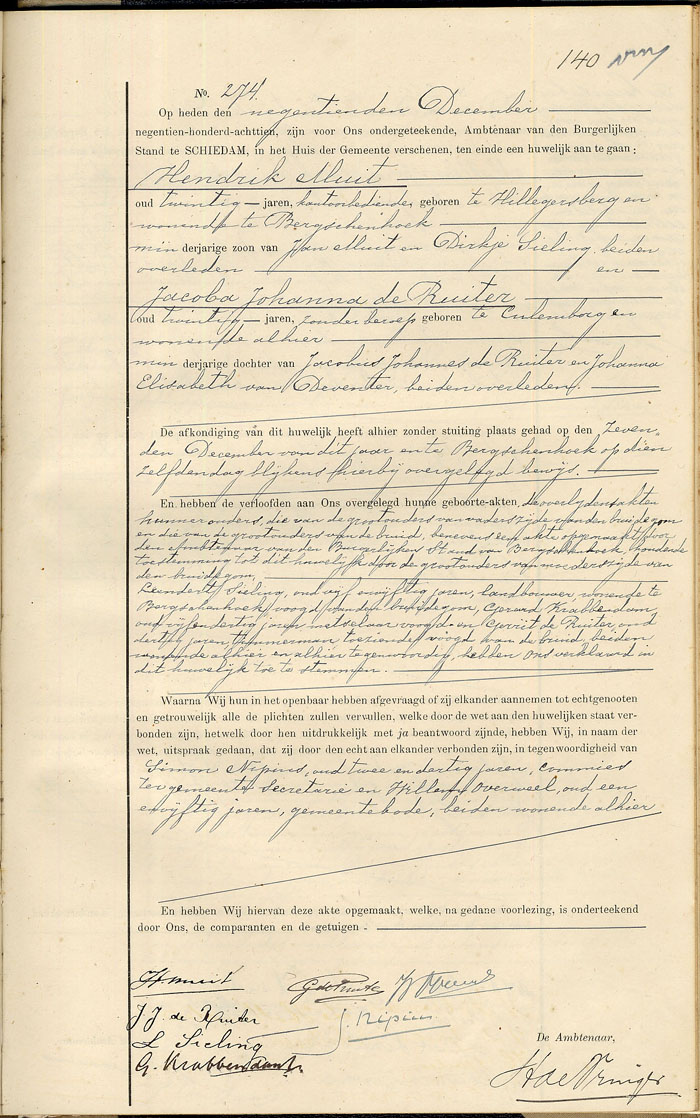 140
No. 274.
Op heden den negentienden December
negentien-honderd-achttien, zijn voor Ons ondergeteekende, Ambtenaar van den Burgerlijken
Stand te SCHIEDAM, in het Huis der Gemeente verschenen, ten einde een huwelijk aan te gaan:
Hendrik Muit
oud twintig jaren, kantoorbediende, geboren te Hillegersberg en
wonende te Bergschenhoek
min derjarige zoon van Jan Muit en Dirkje Sieling, beiden
overleden en
Jacoba Johanna de Ruiter
oud twintig jaren, zonder beroep geboren te Culemborg en
wonende alhier
min derjarige dochter van Jacobus Johannes de Ruiter en Johanna
Elisabeth van Deventer, beiden overleden.
De afkondiging van dit huwelijk heeft alhier zonder stuiting plaats gehad op den zeven-
den December van dit jaar en te Bergschenhoek op dien
zelfden dag blijkens hierbij overgelegd bewijs.
En hebben de verloofden aan Ons overgelegd hunne geboorte-akten, de overlijdensakten
hunner ouders, die van de grootouders van vaderszijde van den bruidegom
en die van de grootouders van de bruid, benevens een akte opgemaakt door
den Ambtenaar van den Burgerlijken Stand van Bergschenhoek, houdende
toestemming tot dit huwelijk door de grootouders van moederszijde van
den bruidegom,
Leendert Sieling, oud vijf en vijftig jaren, landbouwer wonende te
Bergschenhoek voogd van den bruidegom, Gerard Krabbendam,
oud vijf en dertig jaren metselaar voogd en Gerrit de Ruiter oud
dertig jaren timmerman toeziende voogd van de bruid, beiden
wonende alhier en alhier tegenwoordig, hebben Ons verklaard in
dit huwelijk toe te stemmen.
Waarna Wij hun in het openbaar hebben afgevraagd of zij elkander aannemen tot echtgenooten
en getrouwelijk alle de plichten zullen vervullen, welke door de wet aan den huwelijken staat ver-
bonden zijn, hetwelk door hen uitdrukkelijk met ja beantwoord zijnde, hebben Wij, in naam der
wet, uitspraak gedaan, dat zij door den echt aan elkander verbonden zijn, in tegenwoordigheid van
Simon Nipius, oud twee en dertig jaren, commies
ter gemeente Secretarie en Willem Overweel, oud een
en vijftig jaren, gemeentebode, beiden wonende alhier
En hebben Wij hiervan deze akte opgemaakt, welke, na gedane voorlezing, is onderteekend
door Ons, de comparanten en de getuigen.
H. Muit G de Ruiter
J. J. de Ruiter S. Nipius
L Sieling
G. Krabbendam
De Ambtenaar,